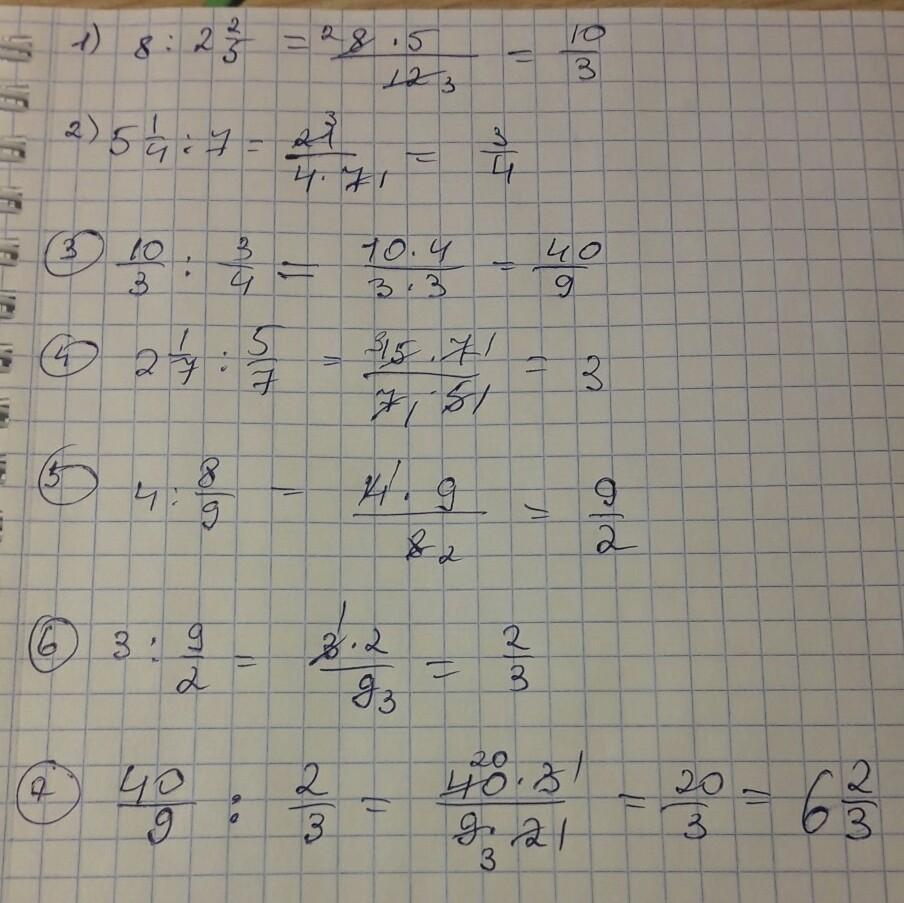 1) 8 : 2 2/3 = 2 8 · 5 / 12 3 = 10/3
2) 5 1/4 : 7 = 21 3 / 4 · 7 1 = 3/4
3 10/3 : 3/4 = 10 · 4 / 3 · 3 = 40/9
4 2 1/7 : 5/7 = 3 15 · 7 1 / 7 1 · 5 1 = 3
5 4 : 8/9 = 4 1 · 9 / 8 2 = 9/2
6 3 : 9/2 = 3 1 · 2 / 9 3 = 2/3
7 40/9 : 2/3 = 40 20 · 3 1 / 9 3 · 2 1 = 20/3 = 6 2/3